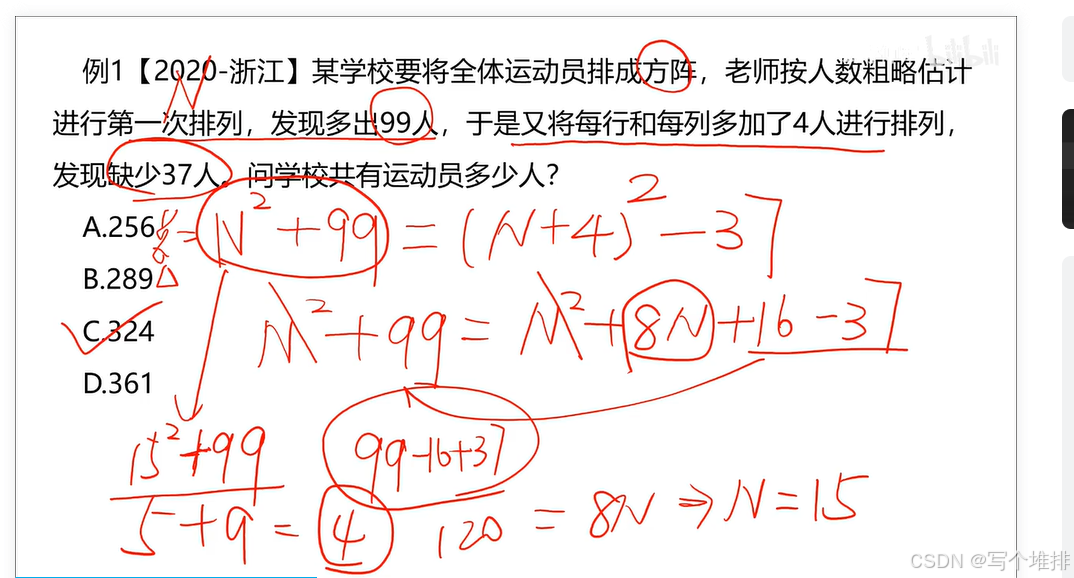 bilibili
例1【2020-浙江】某学校要将全体运动员排成方阵，老师按人数粗略估计
进行第一次排列，发现多出99人，于是又将每行和每列多加了4人进行排列，
发现缺少37人。问学校共有运动员多少人？
N
A.256
= N² + 99 = (N+4)² - 37
B.289
N² + 99 = N² + 8N + 16 - 37
C.324
D.361
15² + 99
99-16+37
5 + 9 = 4
120 = 8N ⇒ N = 15
CSDN @写个堆排